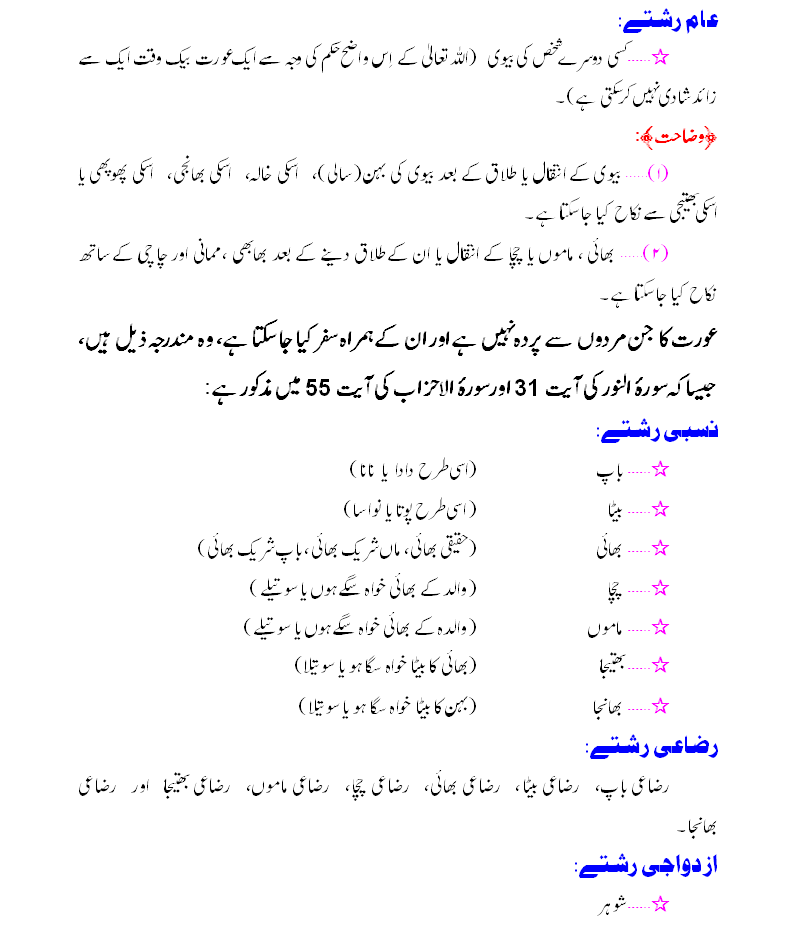 عام رشتے:
☆......کسی دوسرے شخص کی بیوی (اللہ تعالیٰ کے اِس واضح حکم کی وجہ سے ایک عورت بیک وقت ایک سے
زائد شادی نہیں کرسکتی ہے)۔
﴿وضاحت﴾:
(۱)...... بیوی کے انتقال یا طلاق کے بعد بیوی کی بہن(سالی)، اسکی خالہ، اسکی بھانجی، اسکی پھوپھی یا
اسکی بھتیجی سے نکاح کیا جاسکتا ہے۔
(۲)...... بھائی، ماموں یا چچا کے انتقال یا ان کے طلاق دینے کے بعد بھابھی، ممانی اور چاچی کے ساتھ
نکاح کیا جاسکتا ہے۔
عورت کا جن مردوں سے پردہ نہیں ہے اور ان کے ہمراہ سفر کیا جاسکتا ہے، وہ مندرجہ ذیل ہیں،
جیسا کہ سورۂ النور کی آیت 31 اور سورۂ الاحزاب کی آیت 55 میں مذکور ہے:
نسبی رشتے:
☆...... باپ (اسی طرح دادا یا نانا)
☆...... بیٹا (اسی طرح پوتا یا نواسا)
☆...... بھائی (حقیقی بھائی، ماں شریک بھائی، باپ شریک بھائی)
☆...... چچا (والد کے بھائی خواہ سگے ہوں یا سوتیلے)
☆...... ماموں (والدہ کے بھائی خواہ سگے ہوں یا سوتیلے)
☆...... بھتیجا (بھائی کا بیٹا خواہ سگا ہو یا سوتیلا)
☆...... بھانجا (بہن کا بیٹا خواہ سگا ہو یا سوتیلا)
رضاعی رشتے:
رضاعی باپ، رضاعی بیٹا، رضاعی بھائی، رضاعی چچا، رضاعی ماموں، رضاعی بھتیجا اور رضاعی
بھانجا۔
ازدواجی رشتے:
☆......شوہر